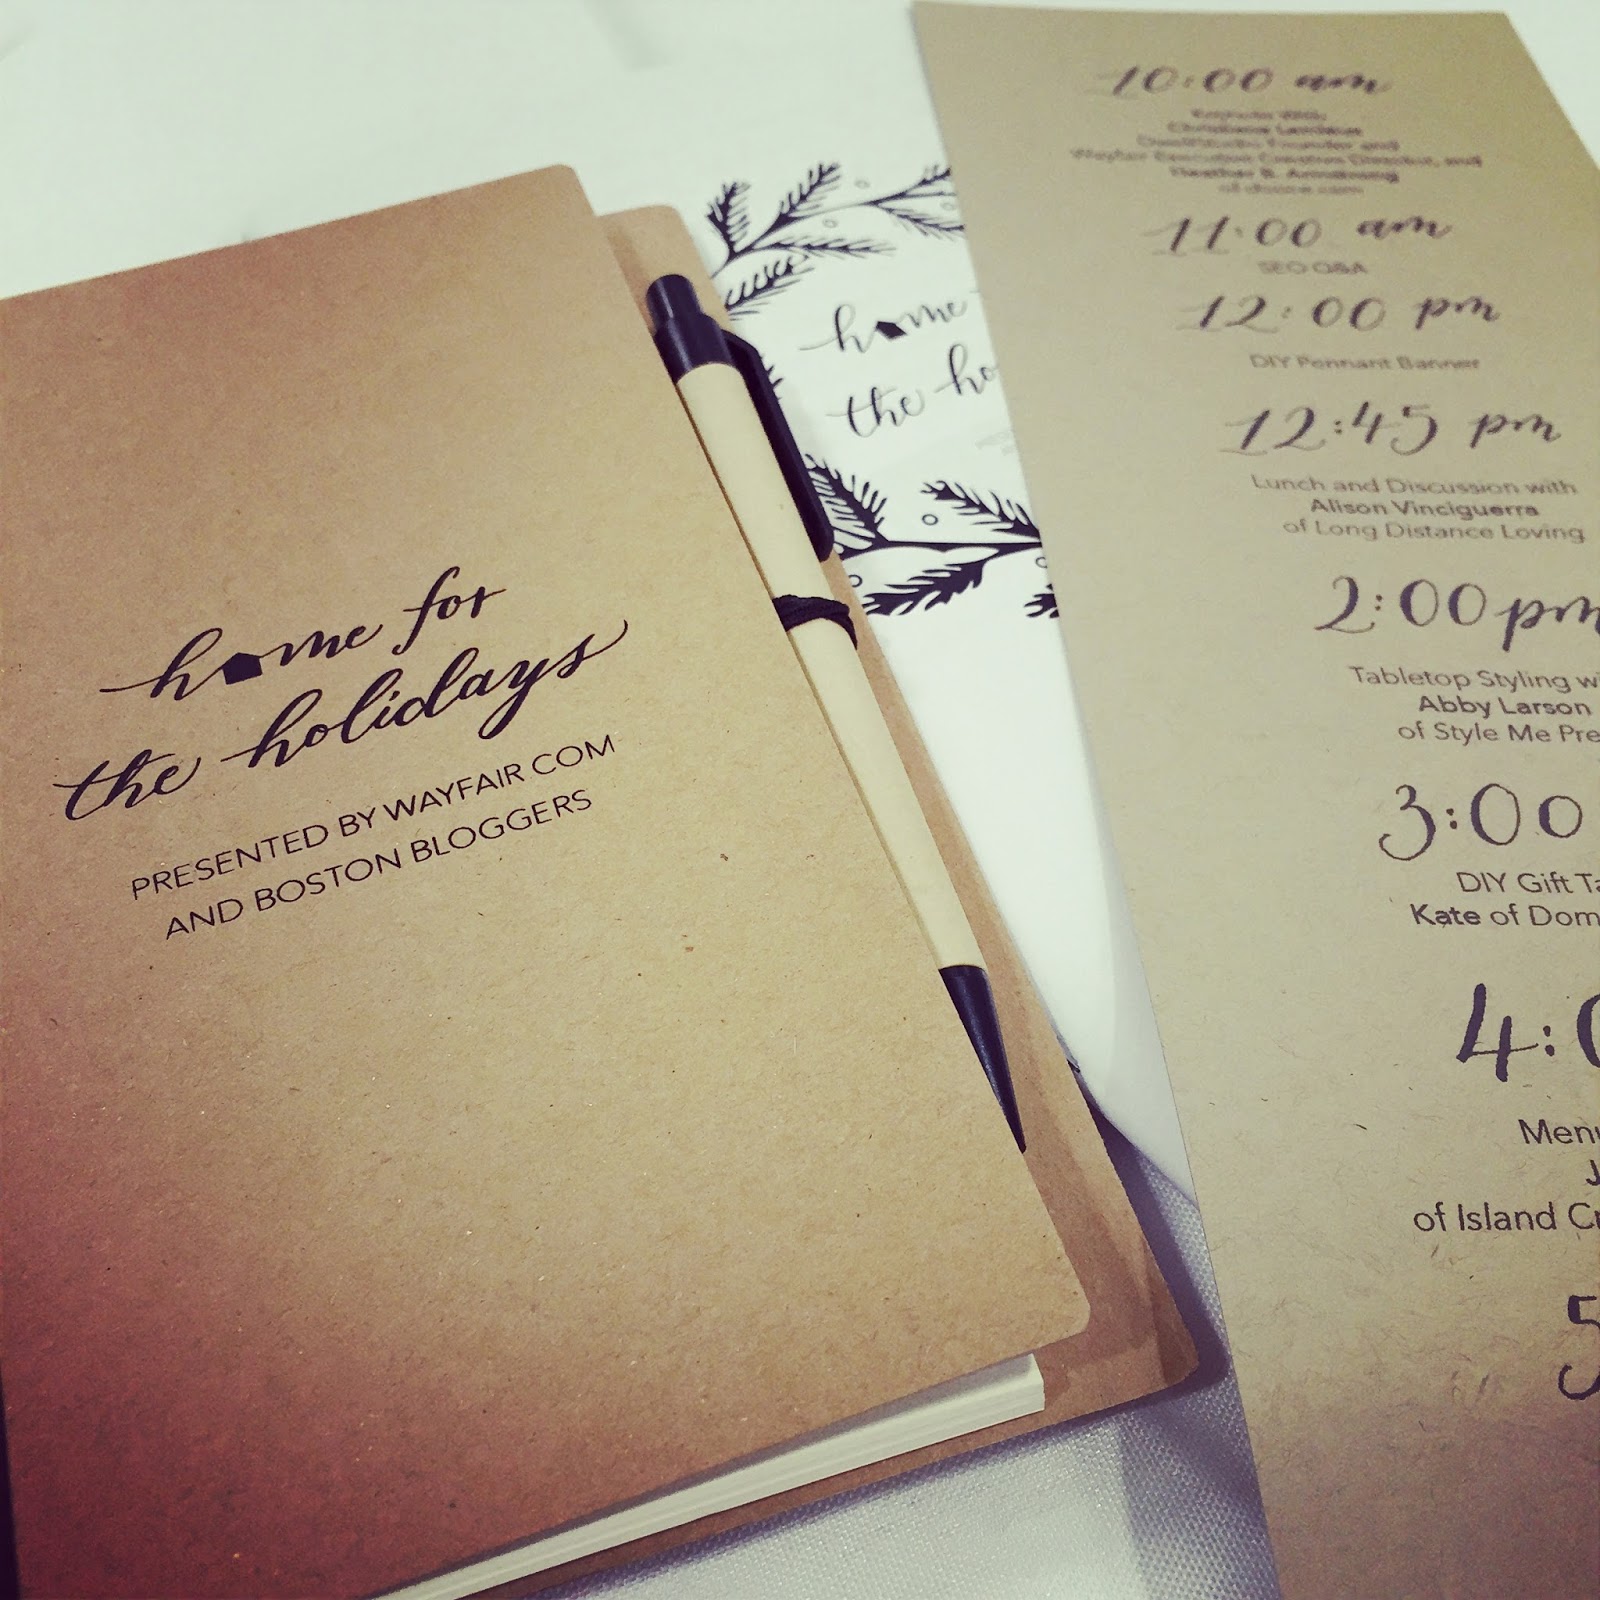 home for
the holidays
PRESENTED BY WAYFAIR COM
AND BOSTON BLOGGERS
home
the ho
10:00 am
Keynote With
Christiane Lemieux
DwellStudio Founder and
Wayfair Executive Creative Director, and
Heather B. Armstrong
of dooce.com
11:00 am
SEO Q&A
12:00 pm
DIY Pennant Banner
12:45 pm
Lunch and Discussion with
Alison Vinciguerra
of Long Distance Loving
2:00 pm
Tabletop Styling wi
Abby Larson
of Style Me Pre
3:00
DIY Gift Ta
Kate of Dom
4:0
Menu
J
of Island Cr
5